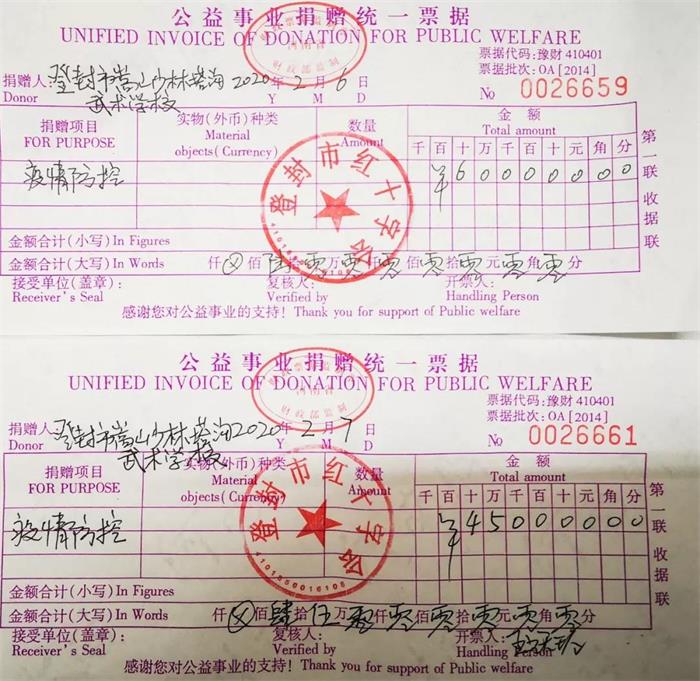 公益事业捐赠统一票据
UNIFIED INVOICE OF DONATION FOR PUBLIC WELFARE
票据代码:豫财 410401
票据批次:OA[2014]
捐赠人: 登封市嵩山少林塔沟 2020 年 2 月 6 日
Donor 武术学校 Y M D
No 0026659
捐赠项目 实物(外币)种类 数量 金额
FOR PURPOSE Material objects(Currency) Amount Total amount
千 百 十 万 千 百 十 元 角 分
疫情防控 ¥ 6 0 0 0 0 0 0 0
登封市红十字会
金额合计(小写) In Figures
金额合计(大写) In Words 仟 ⊗ 佰 陆 拾 零 万 零 仟 零 佰 零 拾 零 元 零 角 零 分
接受单位(盖章): 复核人: 开票人:
Receiver's Seal Verified by Handling Person
感谢您对公益事业的支持! Thank you for support of Public welfare
第一联 收据联
公益事业捐赠统一票据
UNIFIED INVOICE OF DONATION FOR PUBLIC WELFARE
票据代码:豫财 410401
票据批次:OA[2014]
捐赠人: 登封市嵩山少林塔沟 2020 年 2 月 7 日
Donor 武术学校 Y M D
No 0026661
捐赠项目 实物(外币)种类 数量 金额
FOR PURPOSE Material objects(Currency) Amount Total amount
千 百 十 万 千 百 十 元 角 分
疫情防控 ¥ 4 5 0 0 0 0 0 0
登封市红十字会
金额合计(小写) In Figures
金额合计(大写) In Words 仟 ⊗ 佰 肆 拾 伍 万 零 仟 零 佰 零 拾 零 元 零 角 零 分
接受单位(盖章): 复核人: 开票人:
Receiver's Seal Verified by Handling Person
感谢您对公益事业的支持! Thank you for support of Public welfare
第一联 收据联